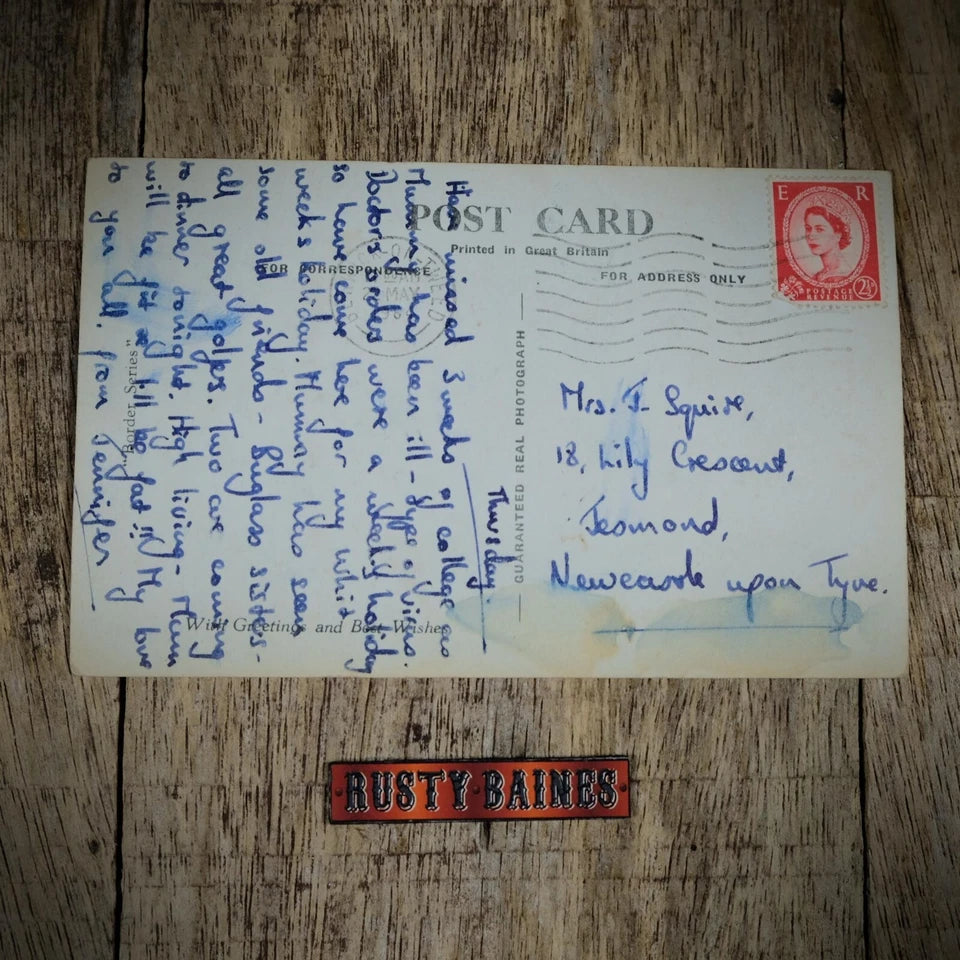 POST CARD
Printed in Great Britain
FOR CORRESPONDENCE
FOR ADDRESS ONLY
E R
POSTAGE
REVENUE
2½
TWEED
MAY
GUARANTEED REAL PHOTOGRAPH
"Border Series"
With Greetings and Best Wishes
Thursday.
Have missed 3 weeks of college as
Mummy has been ill - type of virus.
Doctors orders were a weeks holiday
so have come here for my whit
weeks holiday. Mummy has seen
some old friends - sisters -
all great golfers. Two are coming
to dinner tonight. High living - Mum
will be fit & I'll be fat!! My love
to you all. from Jennifer
Mrs. J. Squire,
18, Lily Crescent,
Jesmond,
Newcastle upon Tyne.
RUSTY BAINES